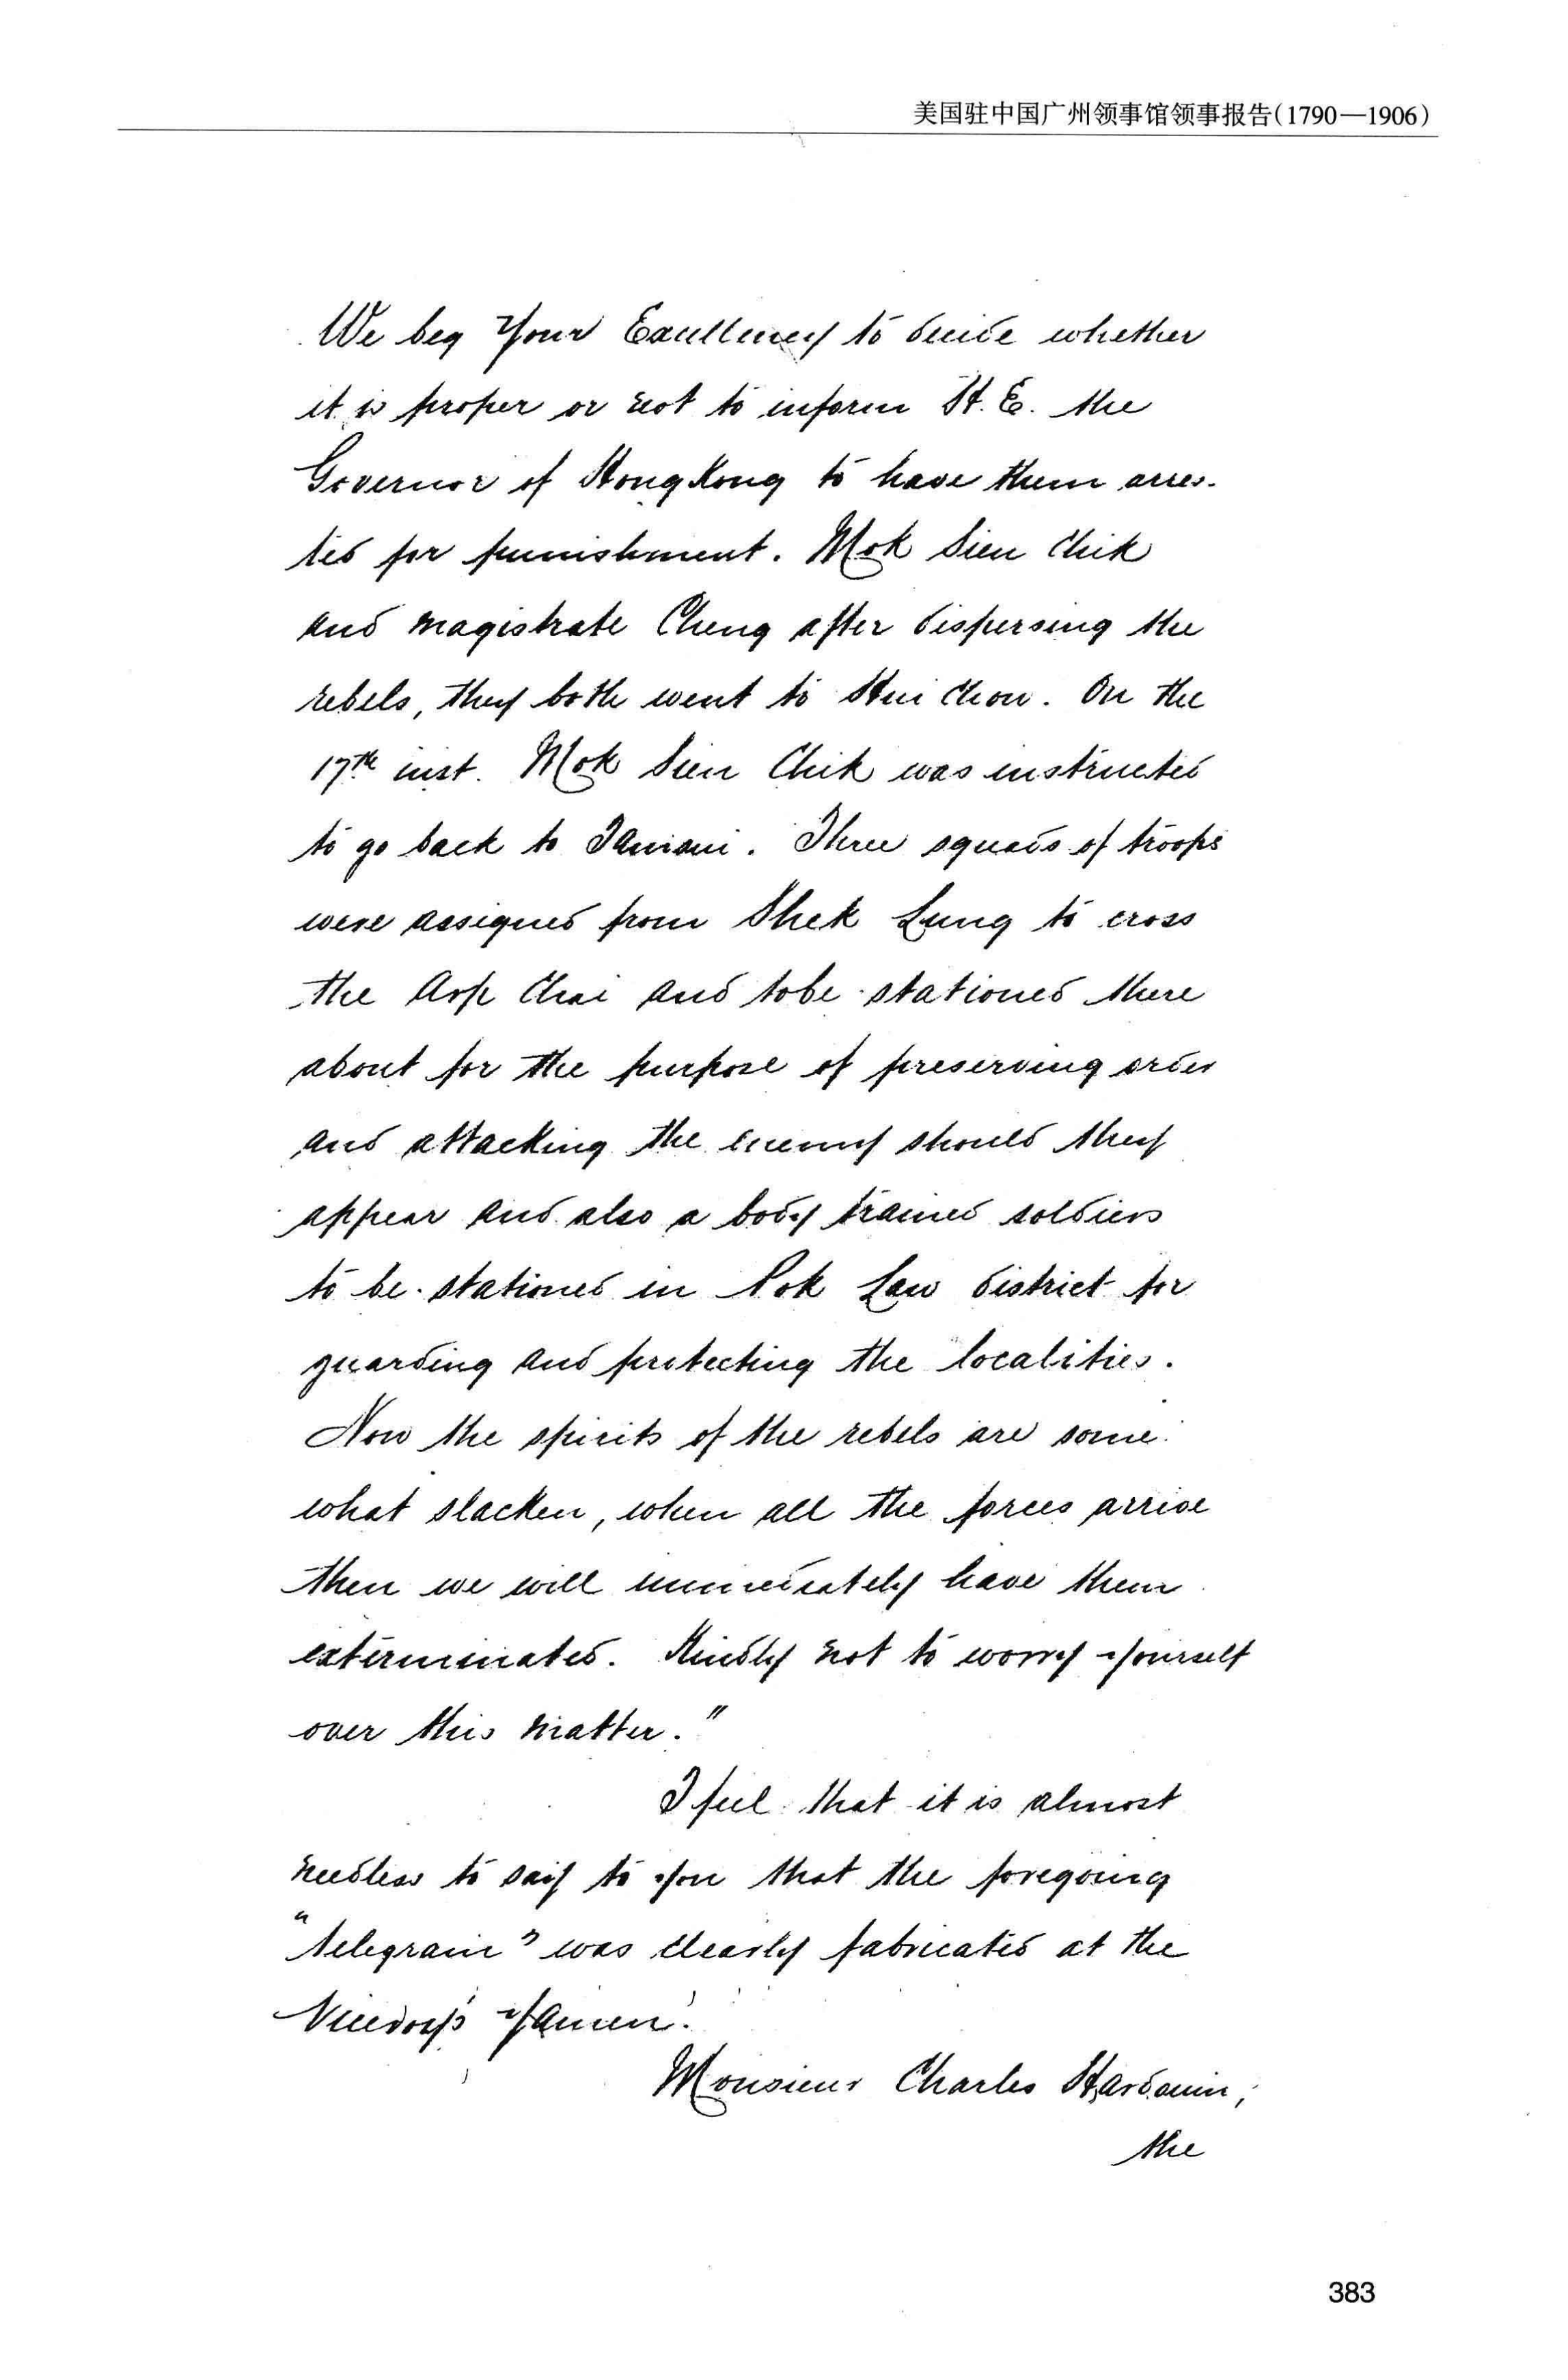 美国驻中国广州领事馆领事报告(1790—1906)
We beg Your Excellency to decide whether
it is proper or not to inform H. E. the
Governor of HongKong to have them arres-
ted for punishment. Mok Sien Chik
and magistrate Cheng after dispersing the
rebels, they both went to Hui Chow. On the
17th inst. Mok Sien Chik was instructed
to go back to Tamsui. Three squads of troops
were assigned from Shek Lung to cross
the Arp Chai and tobe stationed there
about for the purpose of preserving order
and attacking the enemy should they
appear and also a body trained soldiers
to be stationed in Pok Law district for
guarding and protecting the localities.
Now the spirits of the rebels are some-
what slacken, when all the forces arrive
then we will immediately have them
exterminated. Kindly not to worry yourself
over this matter."
I feel that it is almost
needless to say to you that the foregoing
"telegram" was clearly fabricated at the
Viceroy's Yamen.
Monsieur Charles Hardouin,
the
383